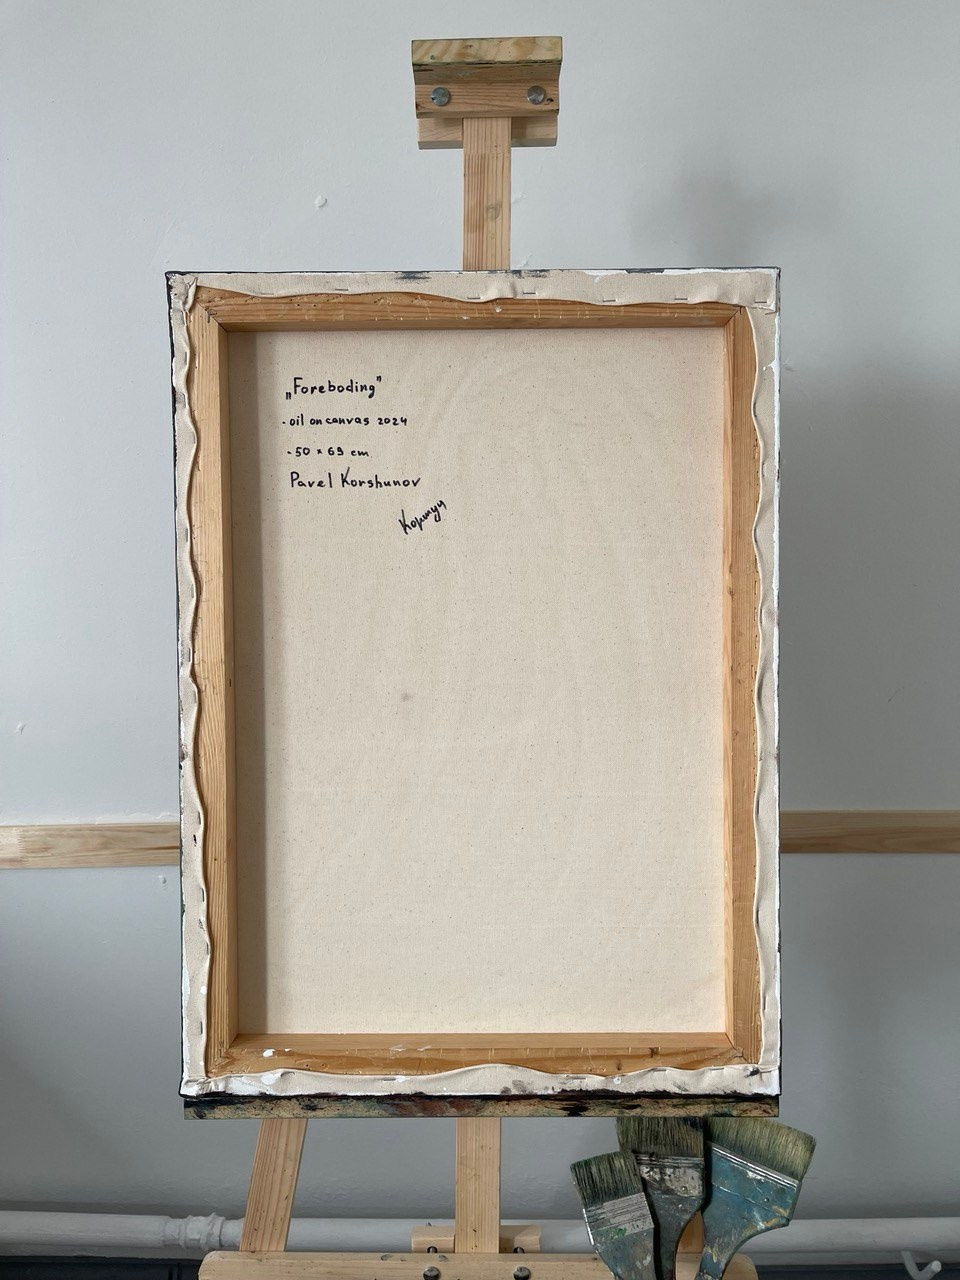 „Foreboding"
- oil on canvas 2024
- 50 × 69 cm
Pavel Korshunov